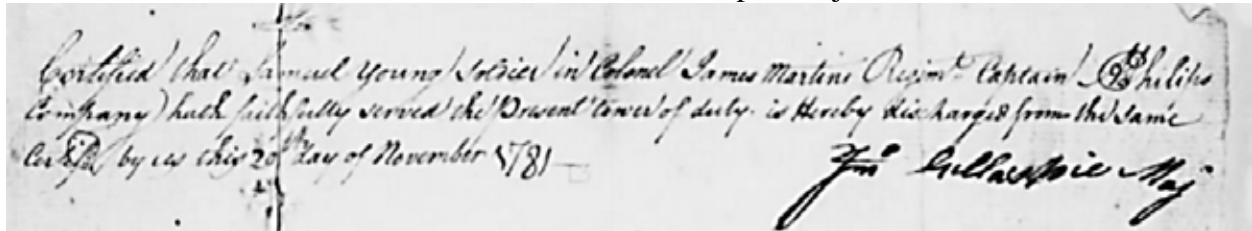 Certified that Samuel Young Soldier in Colonel James Martins Regimt. Captain Philips
Company hath faithfully served the Present tower of duty is Hereby discharged from the same
by us this 20th day of November 1781
Jno Gillaspie Maj